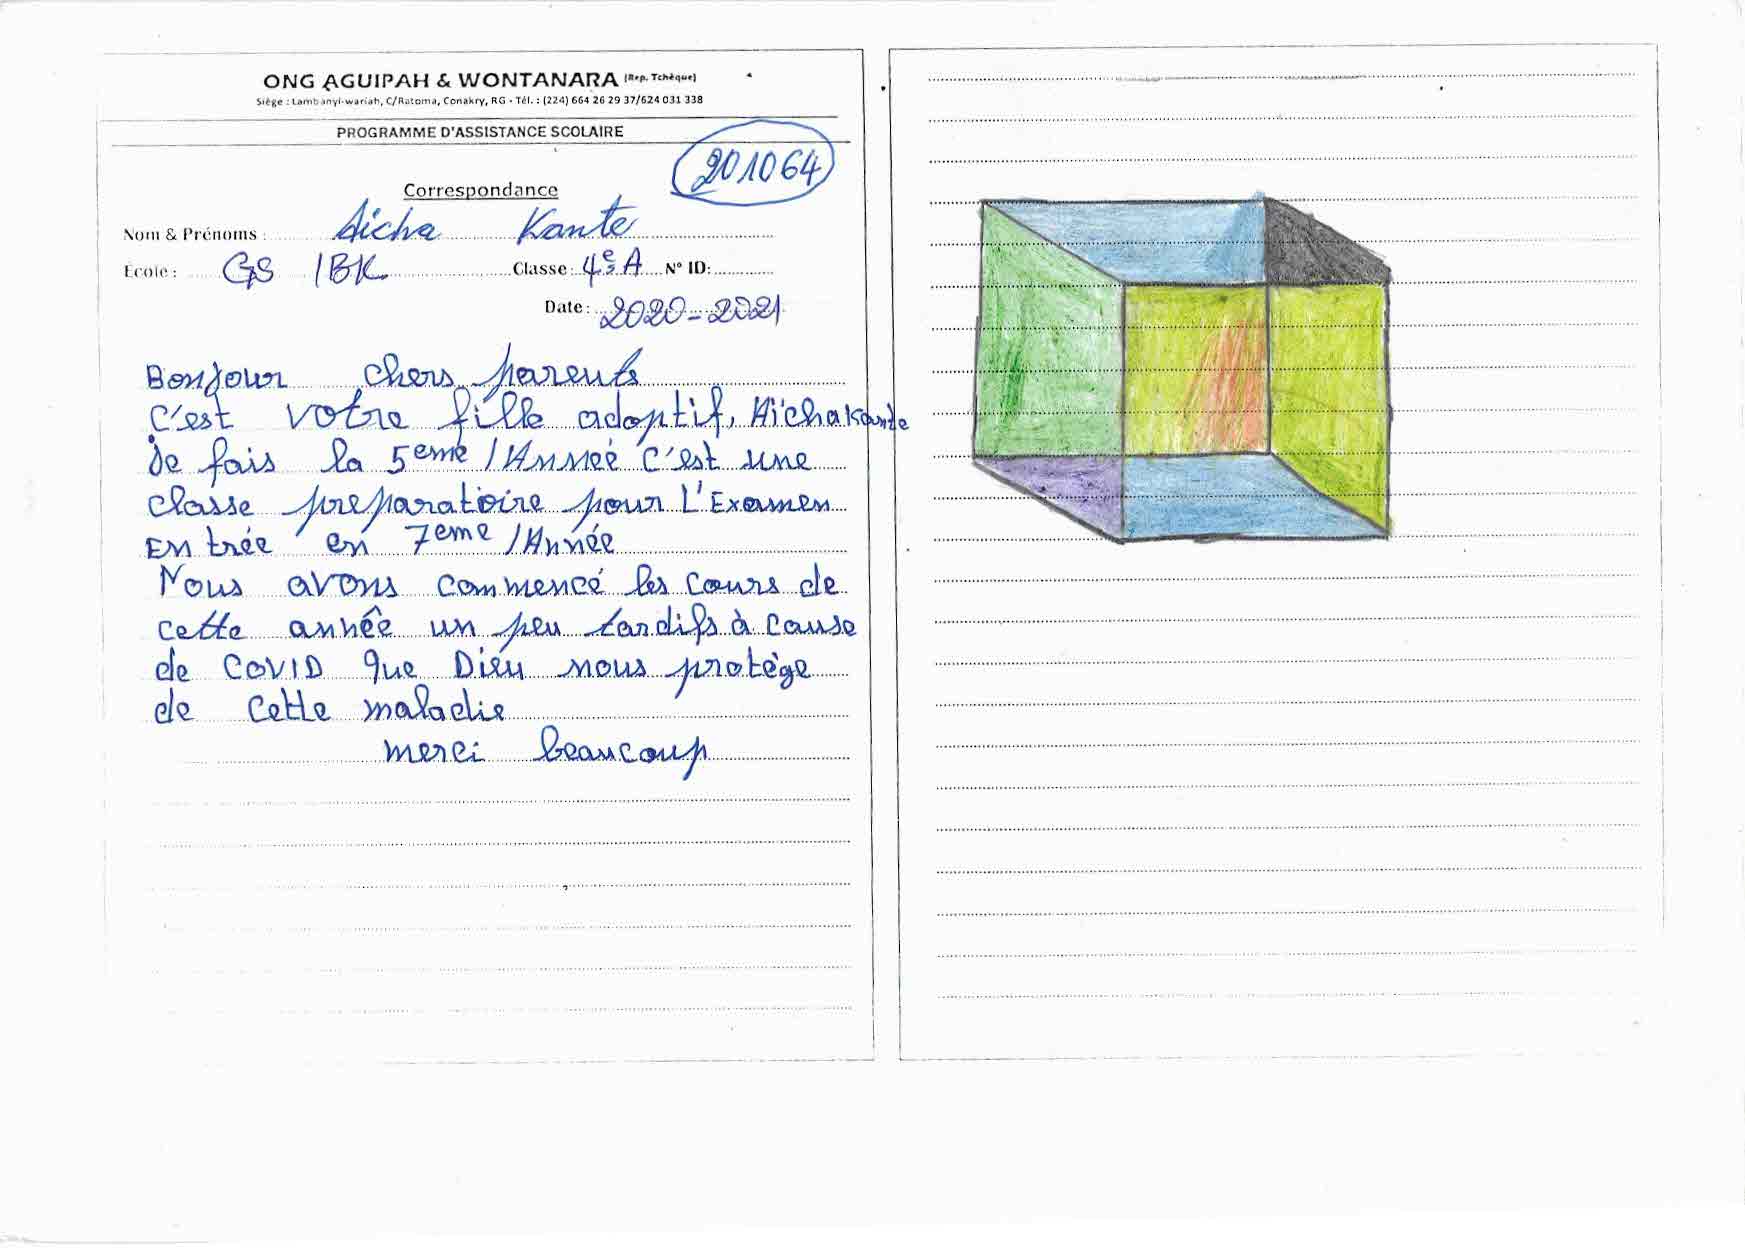 ONG AGUIPAH & WONTANARA (Rep. Tchèque)
Siège : Lambanyi-wariah, C/Ratoma, Conakry, RG - Tél. : (224) 664 26 29 37/624 031 338
PROGRAMME D'ASSISTANCE SCOLAIRE
201064
Correspondance
Nom & Prénoms : Aicha Kante
École : GS IBK Classe : 4e A N° ID:
Date : 2020-2021
Bonjour chers parents
C'est votre fille adoptif, Aïcha Kante
Je fais la 5eme /Année C'est une
classe preparatoire pour L'Examen
Entrée en 7eme /Année
Nous avons commencé les cours de
cette année un peu tardifs à cause
de COVID que Dieu nous protège
de cette maladie
merci beaucoup